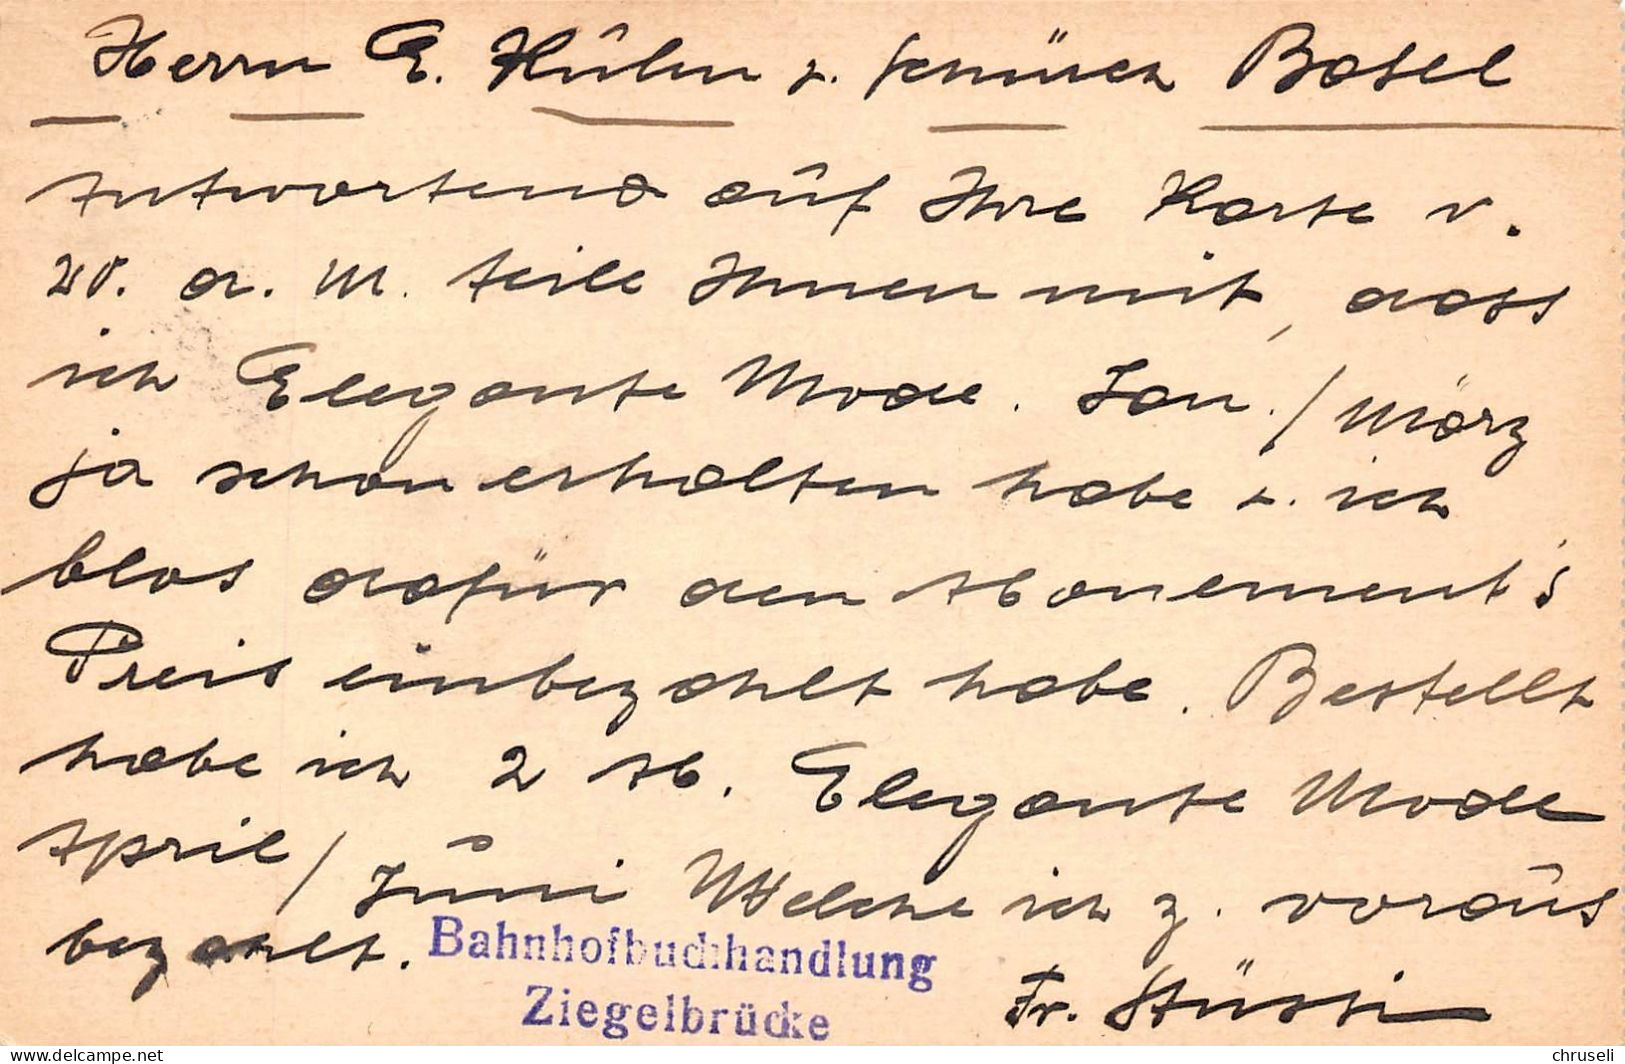 Herrn E. Kühn z. schmuck Basel
Antwortend auf Ihre Karte v.
20. d. M. teile Ihnen mit, dass
ich Elegante Mode. Jan. / März
ja schon erhalten habe u. ich
blos dafür den Abonement's
Preis einbezahlt habe. Bestellt
habe ich 2 Ab. Elegante Mode
April / Juni Welche ich z. voraus
bezahlt.
Fr. Stüssi
Bahnhofbuchhandlung
Ziegelbrücke
chruseli
www.delcampe.net